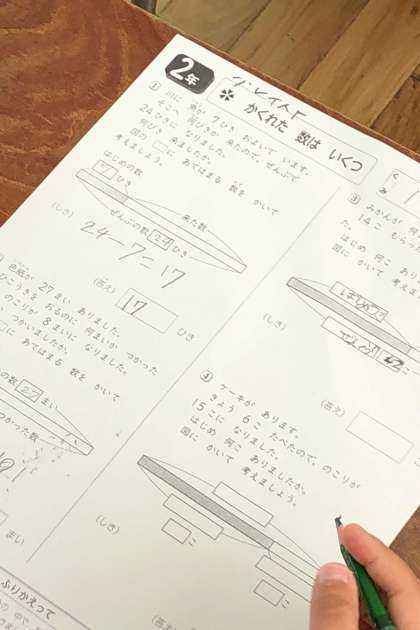 2年
かくれた 数は いくつ
① 川に 魚が 7ひき およいで います。
そこへ 何びきか 来たので、ぜんぶで
24ひきに なりました。
何びき 来ましたか。
図の □に あてはまる 数を かいて
考えましょう。
はじめの数
7 ひき
来た数
ぜんぶの数 24 ひき
(しき)
24-7=17
(答え)
17
ひき
色紙が 27まい ありました。
ひこうきを おるのに 何まいか つかった
のこりが 8まいに なりました。
つかいましたか。
に あてはまる 数を かいて、
の数 27 まい
つかった数
まい
ふりかえって
③ みかんが 何
14こ もら
た。
はじめ 何こ あ
図に かいて 考えま
ぜんぶ 62 こ
(しき)
(答え)
④ ケーキが あります。
きょう 6こ たべたので、のこりが
15こに なりました。
はじめ 何こ ありましたか。
図に かいて 考えましょう。
こ
こ
(しき)
(答え)